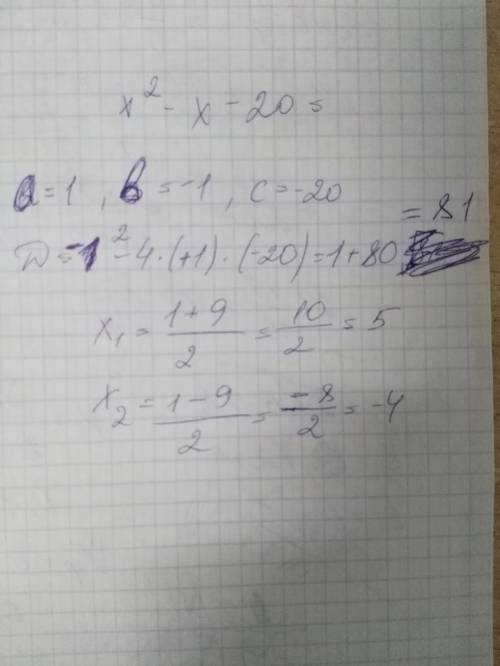 x² - x - 20 =
a = 1 , b = -1 , c = -20
D = -1² - 4 · (+1) · (-20) = 1 + 80 = 81
x₁ = 1+9/2 = 10/2 = 5
x₂ = 1-9/2 = -8/2 = -4